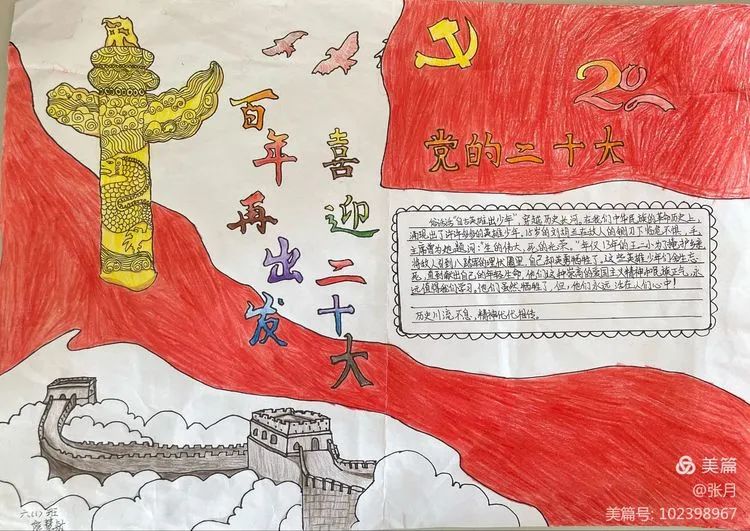 百年再出发
喜迎二十大
20
党的二十大
俗话说"自古英雄出少年",穿越历史长河,在我们中华民族的革命历史上,
涌现出了许许多多的英雄少年,15岁的刘胡兰在敌人的铡刀下临危不惧,毛
主席曾为她题词:"生的伟大,死的光荣。"年仅13年的王二小为了掩护乡亲
将敌人引到八路军的埋伏圈里,自己却英勇牺牲了,这些英雄少年们舍生忘
死,直到献出自己的年轻生命,他们这种崇高的爱国主义精神和民族正气,永
远值得我们学习,他们虽然牺牲了,但,他们永远活在人们心中!
历史川流不息,精神代代相传。
六(1)班
美篇
@张月
美篇号: 102398967